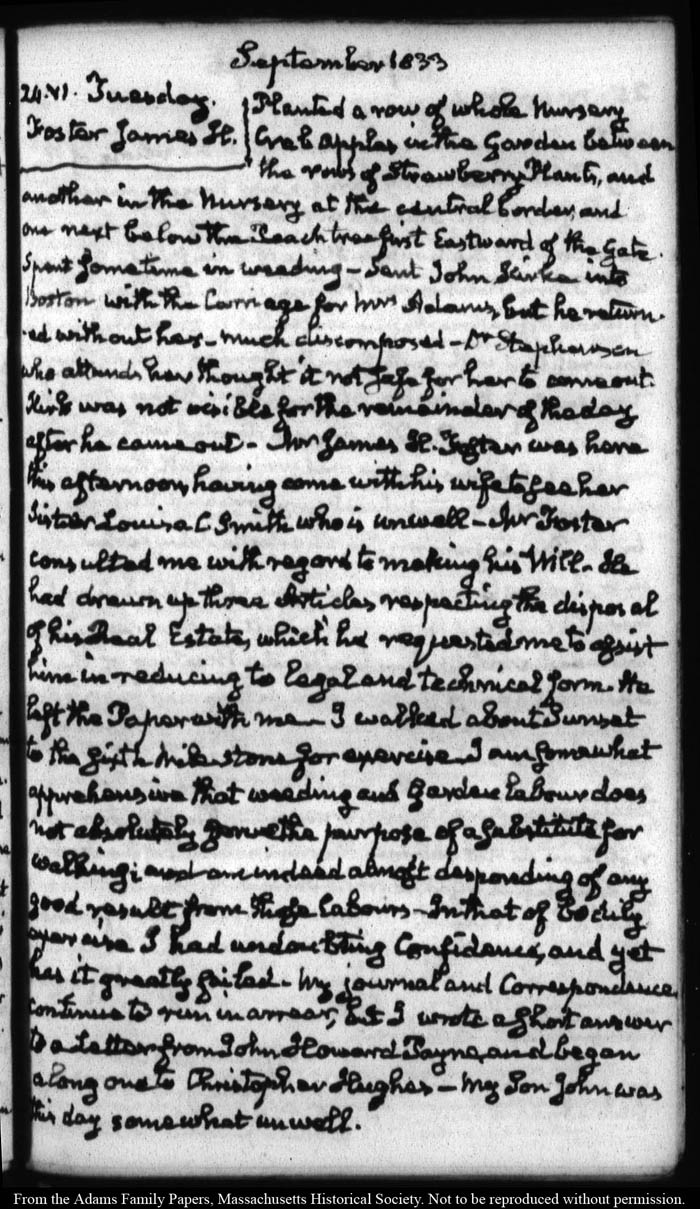 September 1833
24. VI. Tuesday.
Foster James H.
Planted a row of whole Nursery
Crab apples in the Garden between
the rows of Strawberry Plants, and
another in the Nursery at the central border, and
one next below the Peach tree first Eastward of the Gate.
Spent some time in weeding – Sent John Kirke into
Boston with the Carriage for Mrs Adams, but he return-
ed without her – much discomposed – Dr Stephenson
who attends her thought it not safe for her to come out.
Kirk was not visible for the remainder of the day
after he came out – Mr James H. Foster was here
this afternoon, having come with his wife to see her
Sister Louisa C Smith who is unwell – Mr Foster
consulted me with regard to making his Will – He
had drawn up three Articles, respecting the disposal
of his Real Estate, which he requested me to assist
him in reducing to legal and technical form. He
left the Paper with me – I walked about Sunset
to the sixth Mile stone for exercise. I am somewhat
apprehensive that weeding and Garden labour does
not absolutely serve the purpose of a substitute for
walking; and am indeed almost desponding of any
good result from those labours – In that of bodily
exercise I had undoubting Confidence, and yet
has it greatly failed – My journal and Correspondence
continue to run in arrear, but I wrote a short answer
to a Letter from John Howard Payne, and began
a long one to Christopher Hughes – My Son John was
this day somewhat unwell.
From the Adams Family Papers, Massachusetts Historical Society. Not to be reproduced without permission.